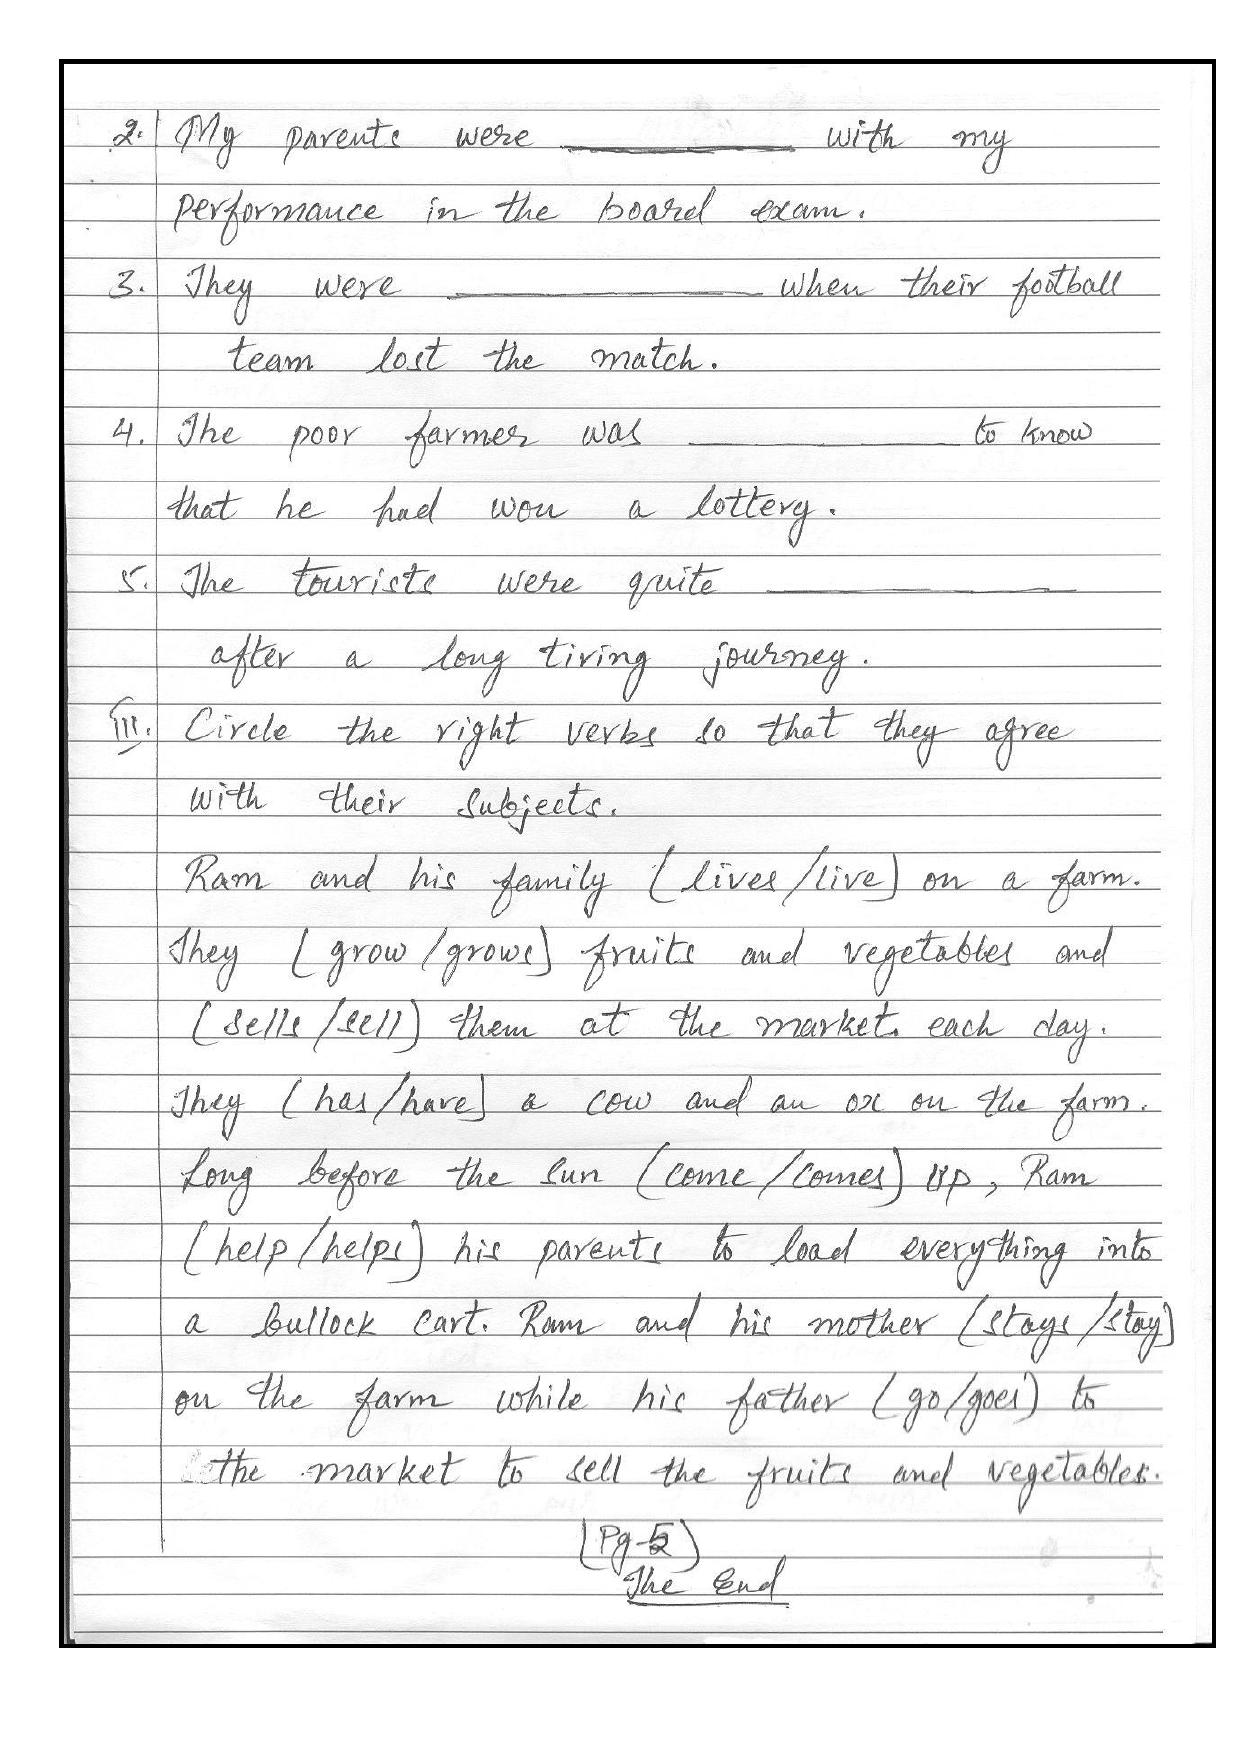 2. My parents were __________ with my
performance in the board exam.
3. They were __________ when their football
team lost the match.
4. The poor farmer was __________ to know
that he had won a lottery.
5. The tourists were quite __________
after a long tiring journey.
III. Circle the right verbs so that they agree
with their subjects.
Ram and his family (lives/live) on a farm.
They (grow/grows) fruits and vegetables and
(sells/sell) them at the market. each day.
They (has/have) a cow and an ox on the farm.
Long before the sun (come/comes) up, Ram
(help/helps) his parents to load everything into
a bullock cart. Ram and his mother (stays/stay)
on the farm while his father (go/goes) to
the market to sell the fruits and vegetables.
(Pg-5)
The End